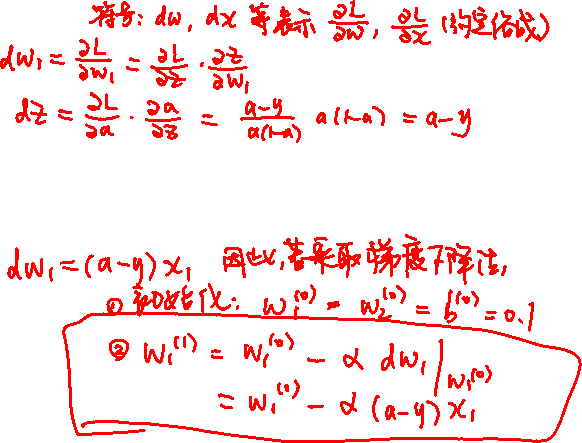 符号: dw, dx 等表示 ∂L/∂w, ∂L/∂x (约定俗成)
dw₁ = ∂L/∂w₁ = ∂L/∂z · ∂z/∂w₁
dz = ∂L/∂a · ∂a/∂z = (a-y)/(a(1-a)) a(1-a) = a-y
dw₁ = (a-y) x₁ 因此, 若采取梯度下降法,
① 初始化: w₁⁽⁰⁾ = w₂⁽⁰⁾ = b⁽⁰⁾ = 0.1
② w₁⁽¹⁾ = w₁⁽⁰⁾ - α dw₁ |w₁⁽⁰⁾
= w₁⁽⁰⁾ - α (a-y) x₁